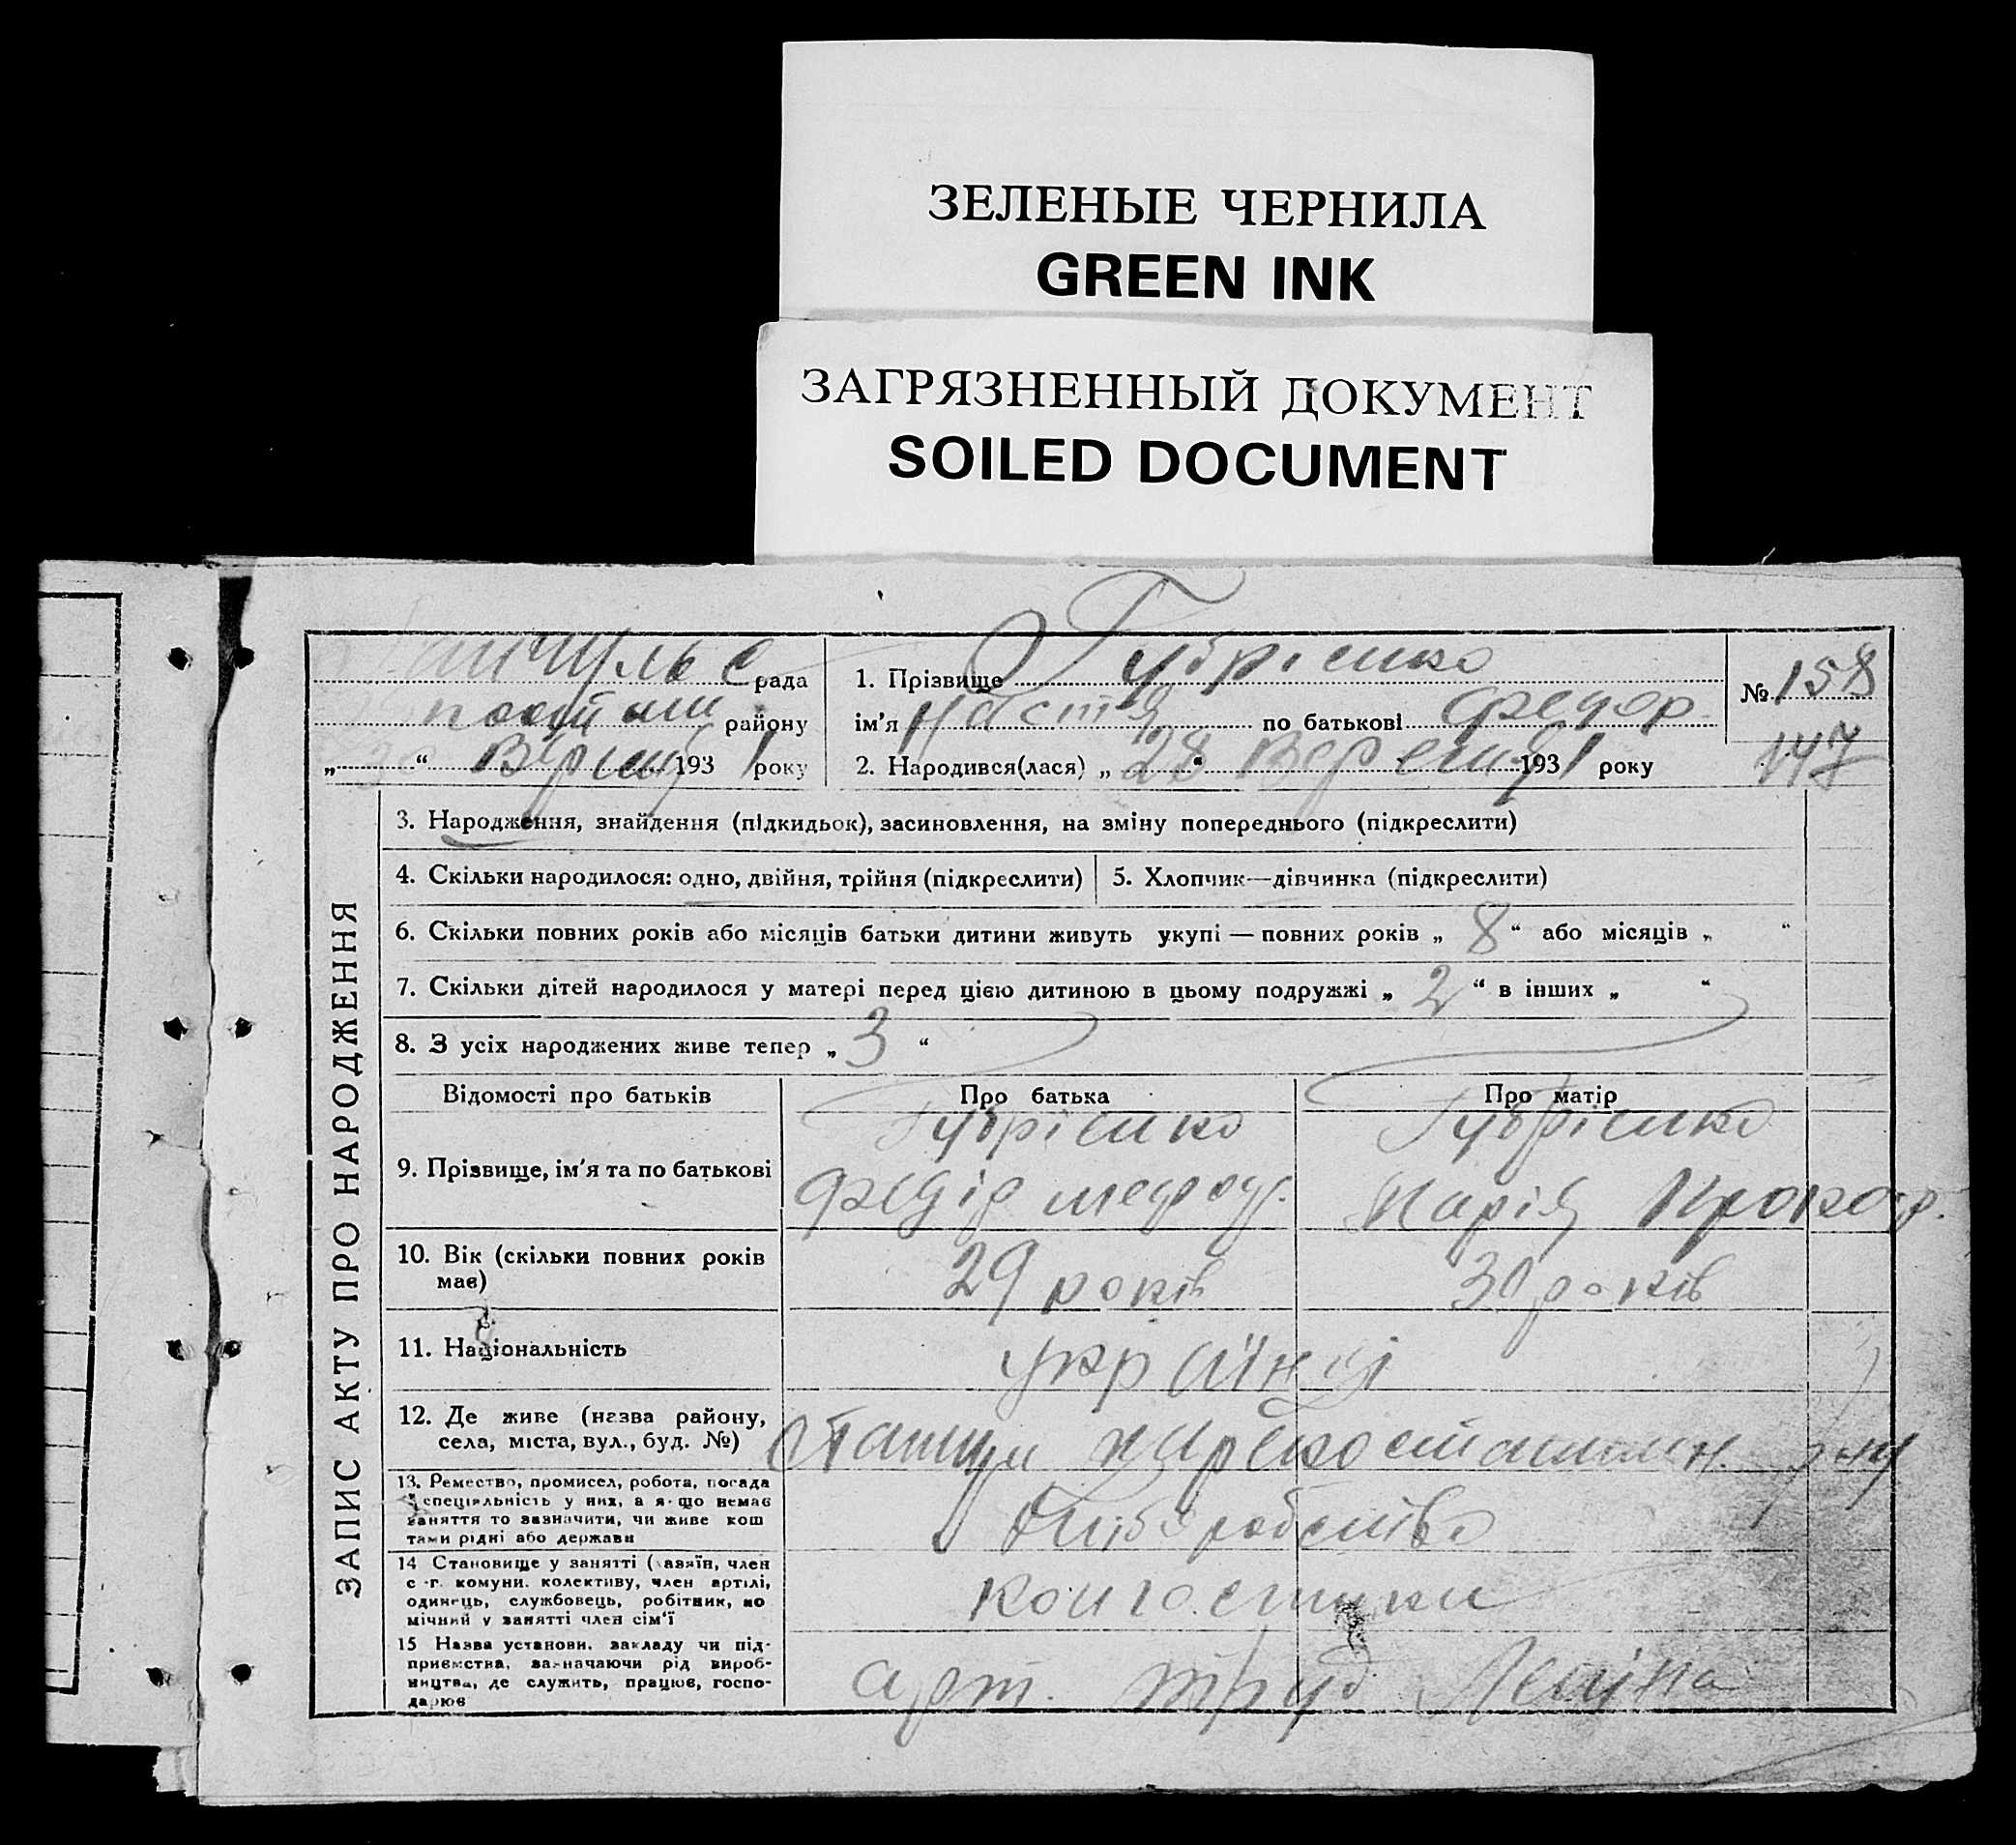 ЗЕЛЕНЫЕ ЧЕРНИЛА
GREEN INK
ЗАГРЯЗНЕННЫЙ ДОКУМЕНТ
SOILED DOCUMENT
ЗАПИС АКТУ ПРО НАРОДЖЕННЯ
рада
району
„ “ 193 1 року
1. Прізвище Губрієнко
ім'я Настя по батькові Федор
2. Народився(лася) „ 28 “ Вересня 193 1 року
№ 158
147
3. Народження, знайдення (підкидьок), засиновлення, на зміну попереднього (підкреслити)
4. Скільки народилося: одно, двійня, трійня (підкреслити)
5. Хлопчик—дівчинка (підкреслити)
6. Скільки повних років або місяців батьки дитини живуть укупі — повних років „ 8 “ або місяців „ “
7. Скільки дітей народилося у матері перед цією дитиною в цьому подружжі „ 2 “ в інших „ “
8. З усіх народжених живе тепер „ 3 “
Відомості про батьків Про батька Про матір
9. Прізвище, ім'я та по батькові
Губрієнко
Федір
Губрієнко
Марія Прокоф.
10. Вік (скільки повних років
має)
29 років
30 років
11. Національність
українці
12. Де живе (назва району,
села, міста, вул., буд. №)
р-ну
13. Ремество, промисел, робота, посада
спеціяльність у них, а якщо немає
заняття то зазначити, чи живе кош
тами рідні або держави
Хліборобство
14 Становище у занятті (хазяїн, член
с.-г. комуни. колективу, член артілі,
одинець, службовець, робітник, по
мічний у занятті член сім'ї
15 Назва установи. закладу чи під-
приємства, зазначаючи рід вироб-
ництва, де служить, працює, госпо-
дарює
арт. труд Леніна